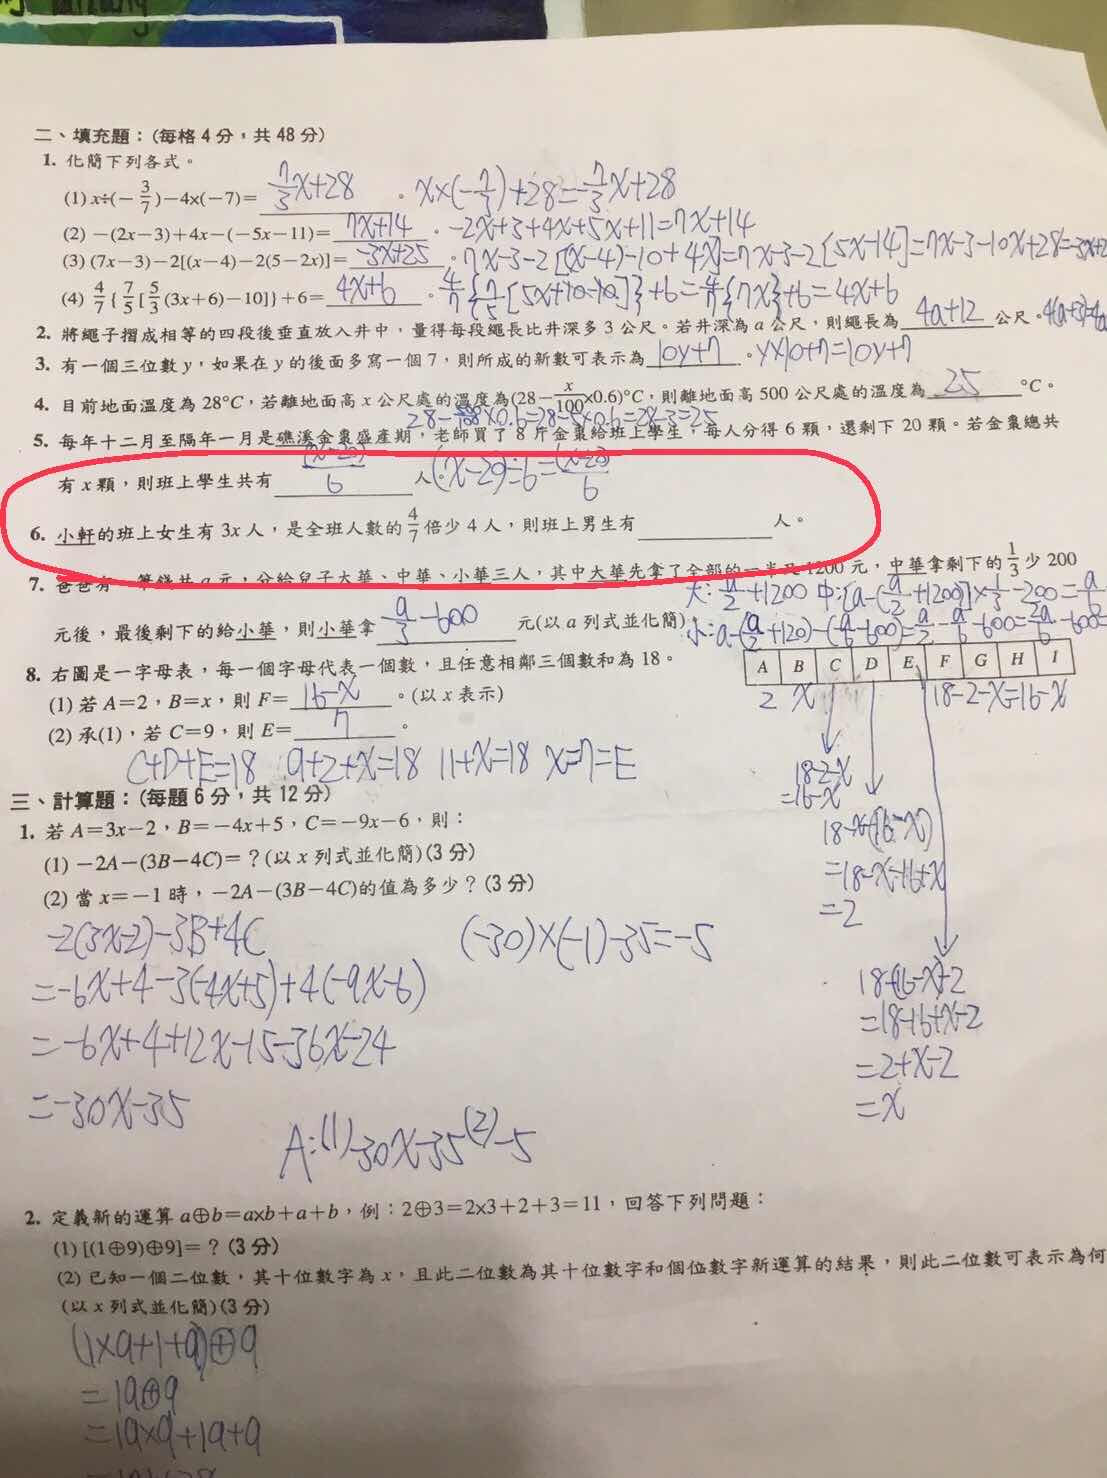 二、填充題：(每格 4 分，共 48 分)
1. 化簡下列各式。
(1) x÷(−3/7)−4×(−7)= 7/3x+28 · x×(−7/3)+28=−7/3x+28
(2) −(2x−3)+4x−(−5x−11)= 7x+14 · −2x+3+4x+5x+11=7x+14
(3) (7x−3)−2[(x−4)−2(5−2x)]= −3x+25 · 7x−3−2[(x−4)−10+4x]=7x−3−2[5x−14]=7x−3−10x+28=−3x+2
(4) 4/7{7/5[5/3(3x+6)−10]}+6= 4x+6 · 4/7{7/5[5x+10−10]}+6=4/7{7x}+6=4x+6
2. 將繩子摺成相等的四段後垂直放入井中，量得每段繩長比井深多 3 公尺。若井深為 a 公尺，則繩長為 4a+12 公尺。4(a+3)=4a
3. 有一個三位數 y，如果在 y 的後面多寫一個 7，則所成的新數可表示為 10y+7 · y×10+7=10y+7
4. 目前地面溫度為 28°C，若離地面高 x 公尺處的溫度為(28−x/100×0.6)°C，則離地面高 500 公尺處的溫度為 25 °C。
28−500/100×0.6=28−5×0.6=28−3=25
5. 每年十二月至隔年一月是礁溪金棗盛產期，老師買了 8 斤金棗給班上學生，每人分得 6 顆，還剩下 20 顆。若金棗總共
有 x 顆，則班上學生共有 (x−20)/6 人 (x−20)÷6=(x−20)/6
6. 小軒的班上女生有 3x 人，是全班人數的 4/7 倍少 4 人，則班上男生有 人。
7. 爸爸有一筆錢共 a 元，分給兒子大華、中華、小華三人，其中大華先拿了全部的一半及 1200 元，中華拿剩下的 1/3 少 200
大：a/2+1200 中：[a−(a/2+1200)]×1/3−200=a
元後，最後剩下的給小華，則小華拿 a/3−600 元(以 a 列式並化簡)。
小：a−(a/2+120)−(a/6−600)=a/2−a/6−600=2a/6−600=
8. 右圖是一字母表，每一個字母代表一個數，且任意相鄰三個數和為 18。
A B C D E F G H I
2 x 18−2−x=16−x
(1) 若 A=2，B=x，則 F= 16−x 。(以 x 表示)
(2) 承(1)，若 C=9，則 E= 7 。
C+D+E=18 9+2+x=18 11+x=18 x=7=E
18−2−x
=16−x
18−x−(16−x)
=18−x−16+x
=2
18−(16−x)−2
=18−16+x−2
=2+x−2
=x
三、計算題：(每題 6 分，共 12 分)
1. 若 A=3x−2，B=−4x+5，C=−9x−6，則：
(1) −2A−(3B−4C)=？(以 x 列式並化簡)(3 分)
(2) 當 x=−1 時，−2A−(3B−4C)的值為多少？(3 分)
−2(3x−2)−3B+4C
=−6x+4−3(−4x+5)+4(−9x−6)
=−6x+4+12x−15−36x−24
=−30x−35
(−30)×(−1)−35=−5
A：(1)−30x−35 (2)−5
2. 定義新的運算 a⊕b=a×b+a+b，例：2⊕3=2×3+2+3=11，回答下列問題：
(1) [(1⊕9)⊕9]=？(3 分)
(2) 已知一個二位數，其十位數字為 x，且此二位數為其十位數字和個位數字新運算的結果，則此二位數可表示為何
(以 x 列式並化簡)(3 分)
(1×9+1+9)⊕9
=19⊕9
=19×9+19+9